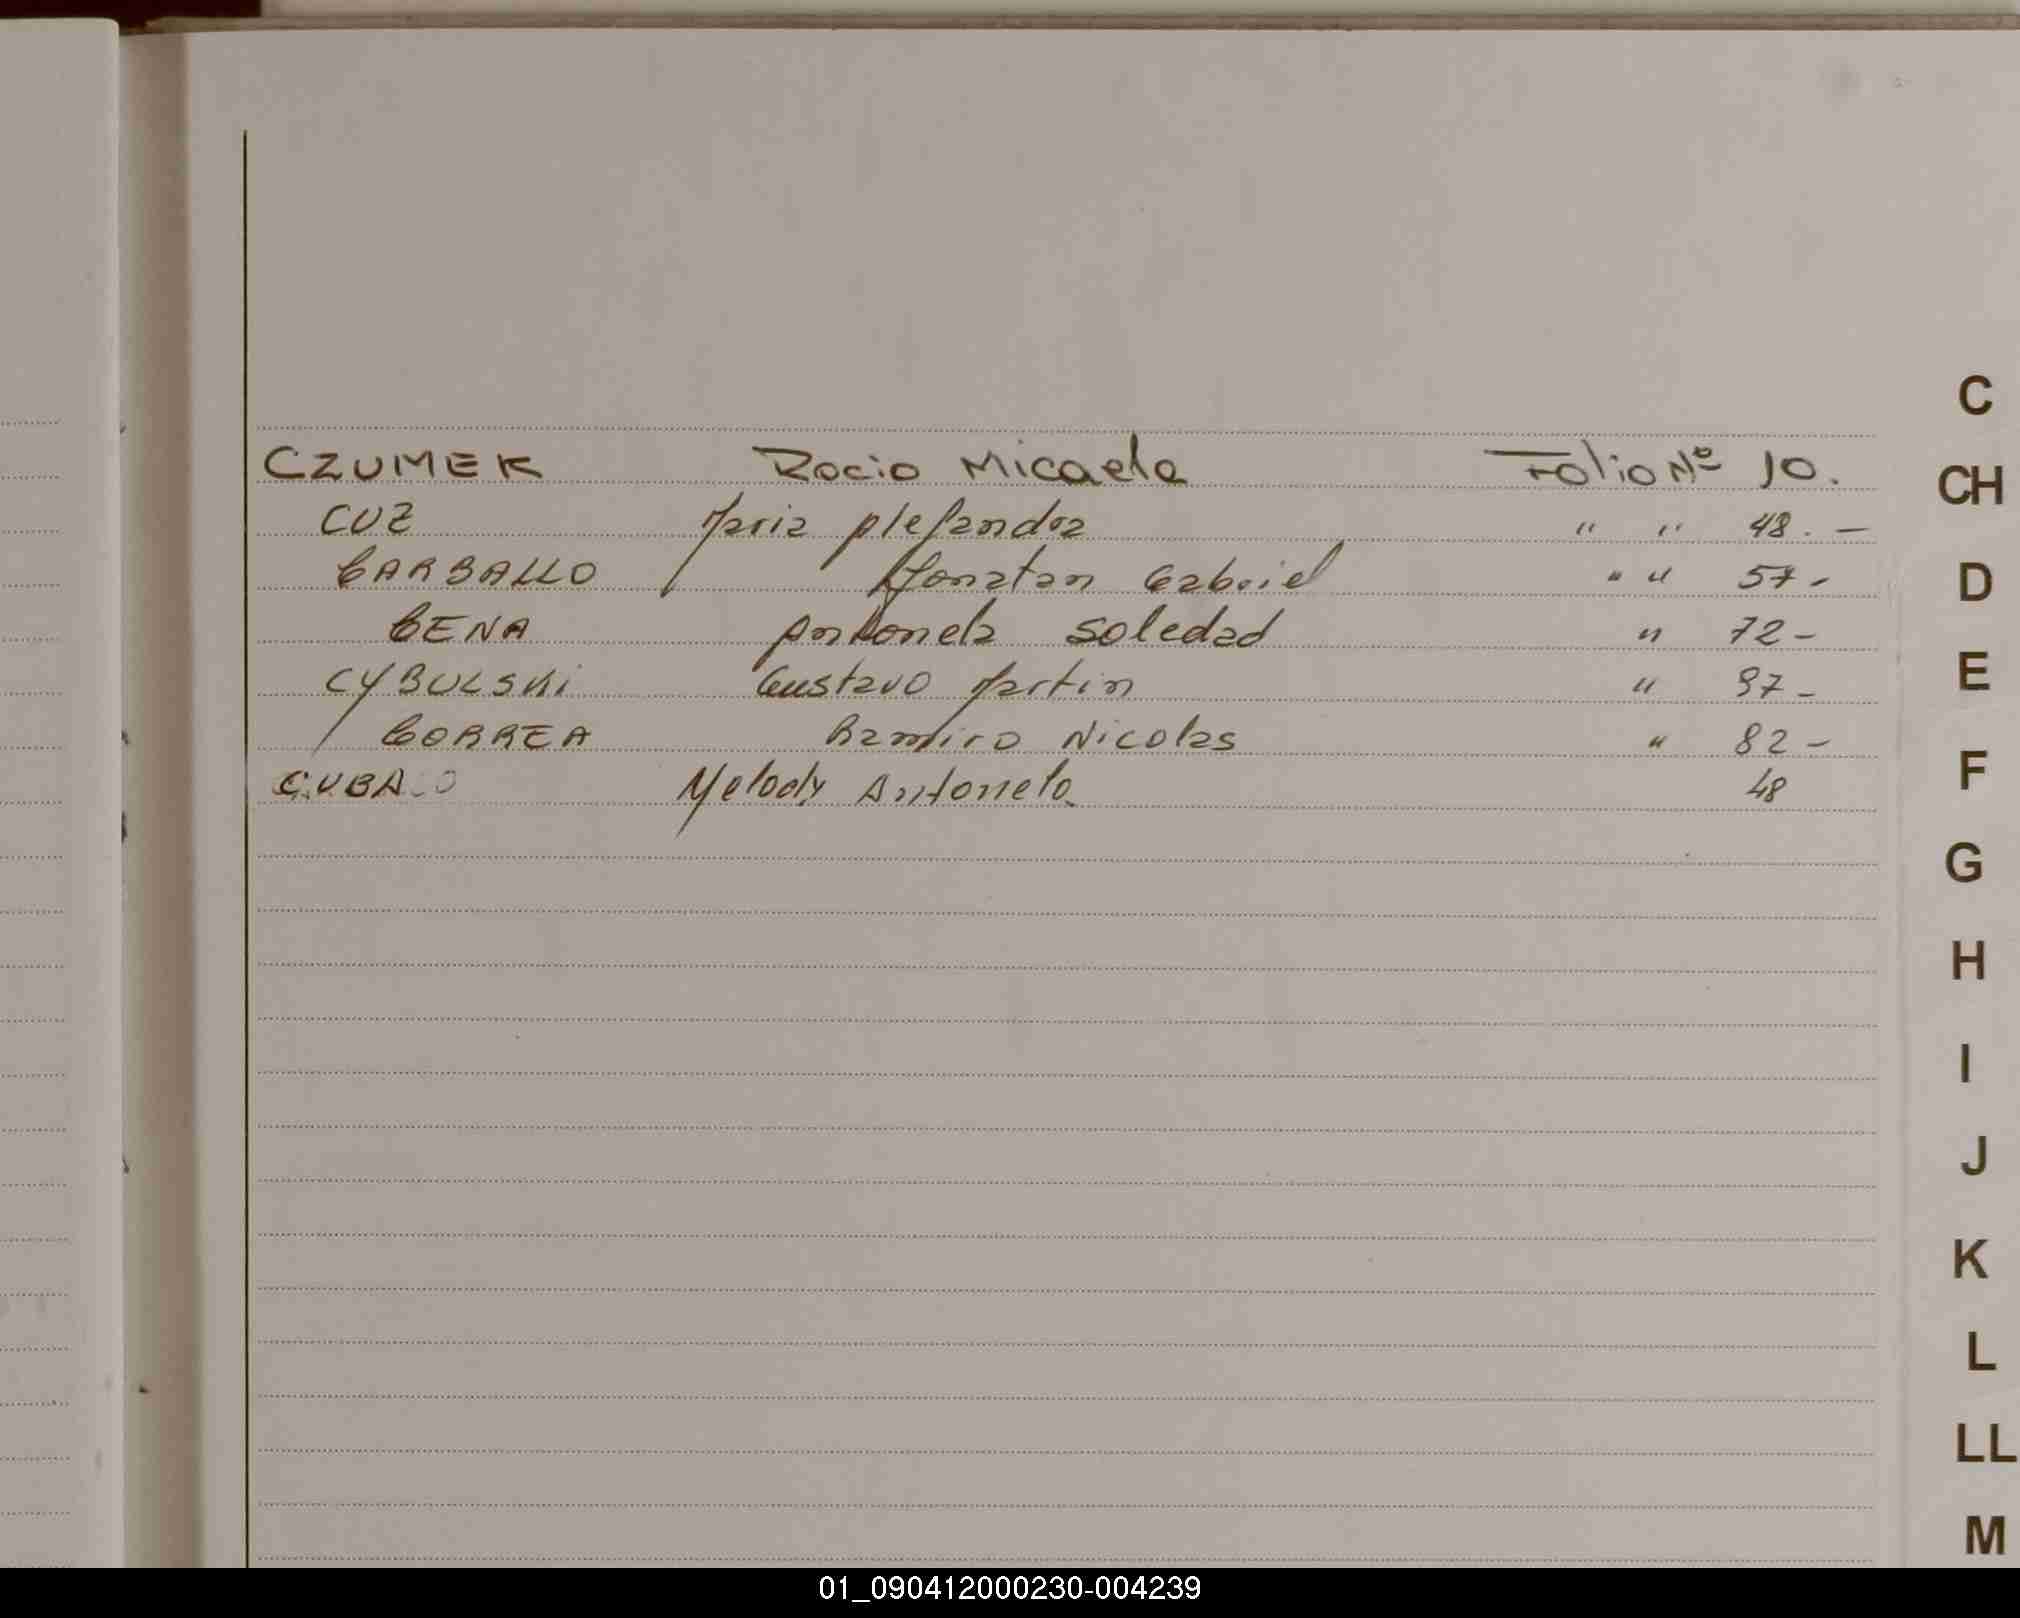 CZUMEK Rocio Micaela Folio Nº 10.
CUZ Maria Alejandra " " 48. -
CARBALLO Jonatan Gabriel " " 57 -
CENA Antonela Soledad " 72 -
CYBULSKi Gustavo Martin " 97 -
CORREA Ramiro Nicolas " 82 -
Melody Antonela 48
C
CH
D
E
F
G
H
I
J
K
L
LL
M
01_090412000230-004239